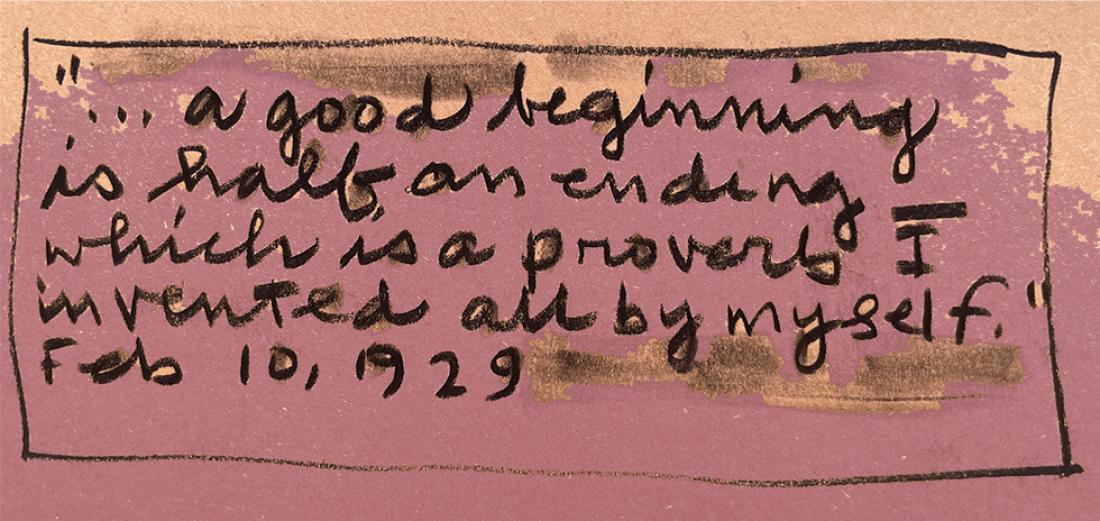 "... a good beginning
is half an ending
which is a proverb I
invented all by myself."
Feb 10, 1929